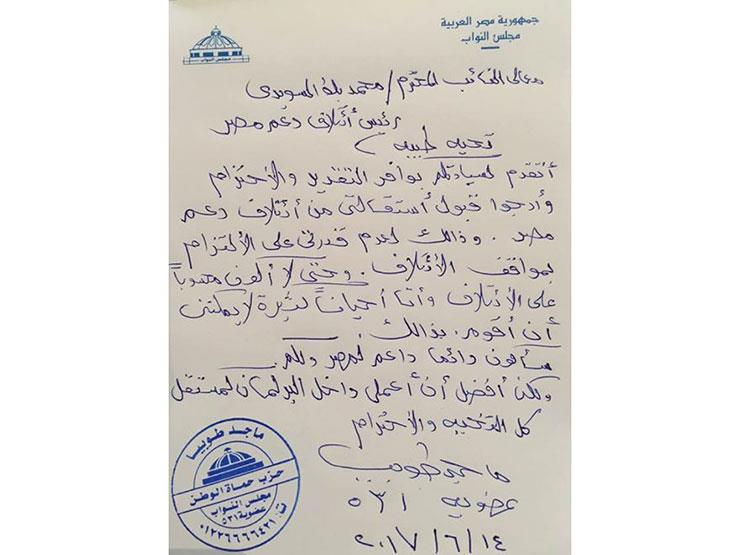 جمهورية مصر العربية
مجلس النواب
مجلس النواب
معالى النائب المحترم / محمد زكى السويدى
رئيس أئتلاف دعم مصر
تحيه طيبه
أتقدم لسيادتكم بوافر التقدير والأحترام
وأرجوا قبول أستقالتى من أئتلاف دعم
مصر . وذالك لعدم قدرتى على الألتزام
بمواقف الأئتلاف . وحتى لا أكون محسوباً
على الأئتلاف وأنا أحياناً كثيرة لا يمكننى
أن أقوم بذالك .
سأكون دائما داعم لمصر ولكم .
ولكن أفضل أن أعملى داخل البرلمان كمستقل
كل التحيه والأحترام
ماجد طوبيا
عضويه ٥٣١
٢٠١٧/٦/١٤
ماجد طوبيا
حزب حماة الوطن
مجلس النواب
عضوية ٥٣١
ت: ٠١٢٢٦٦٦٦٤٢١